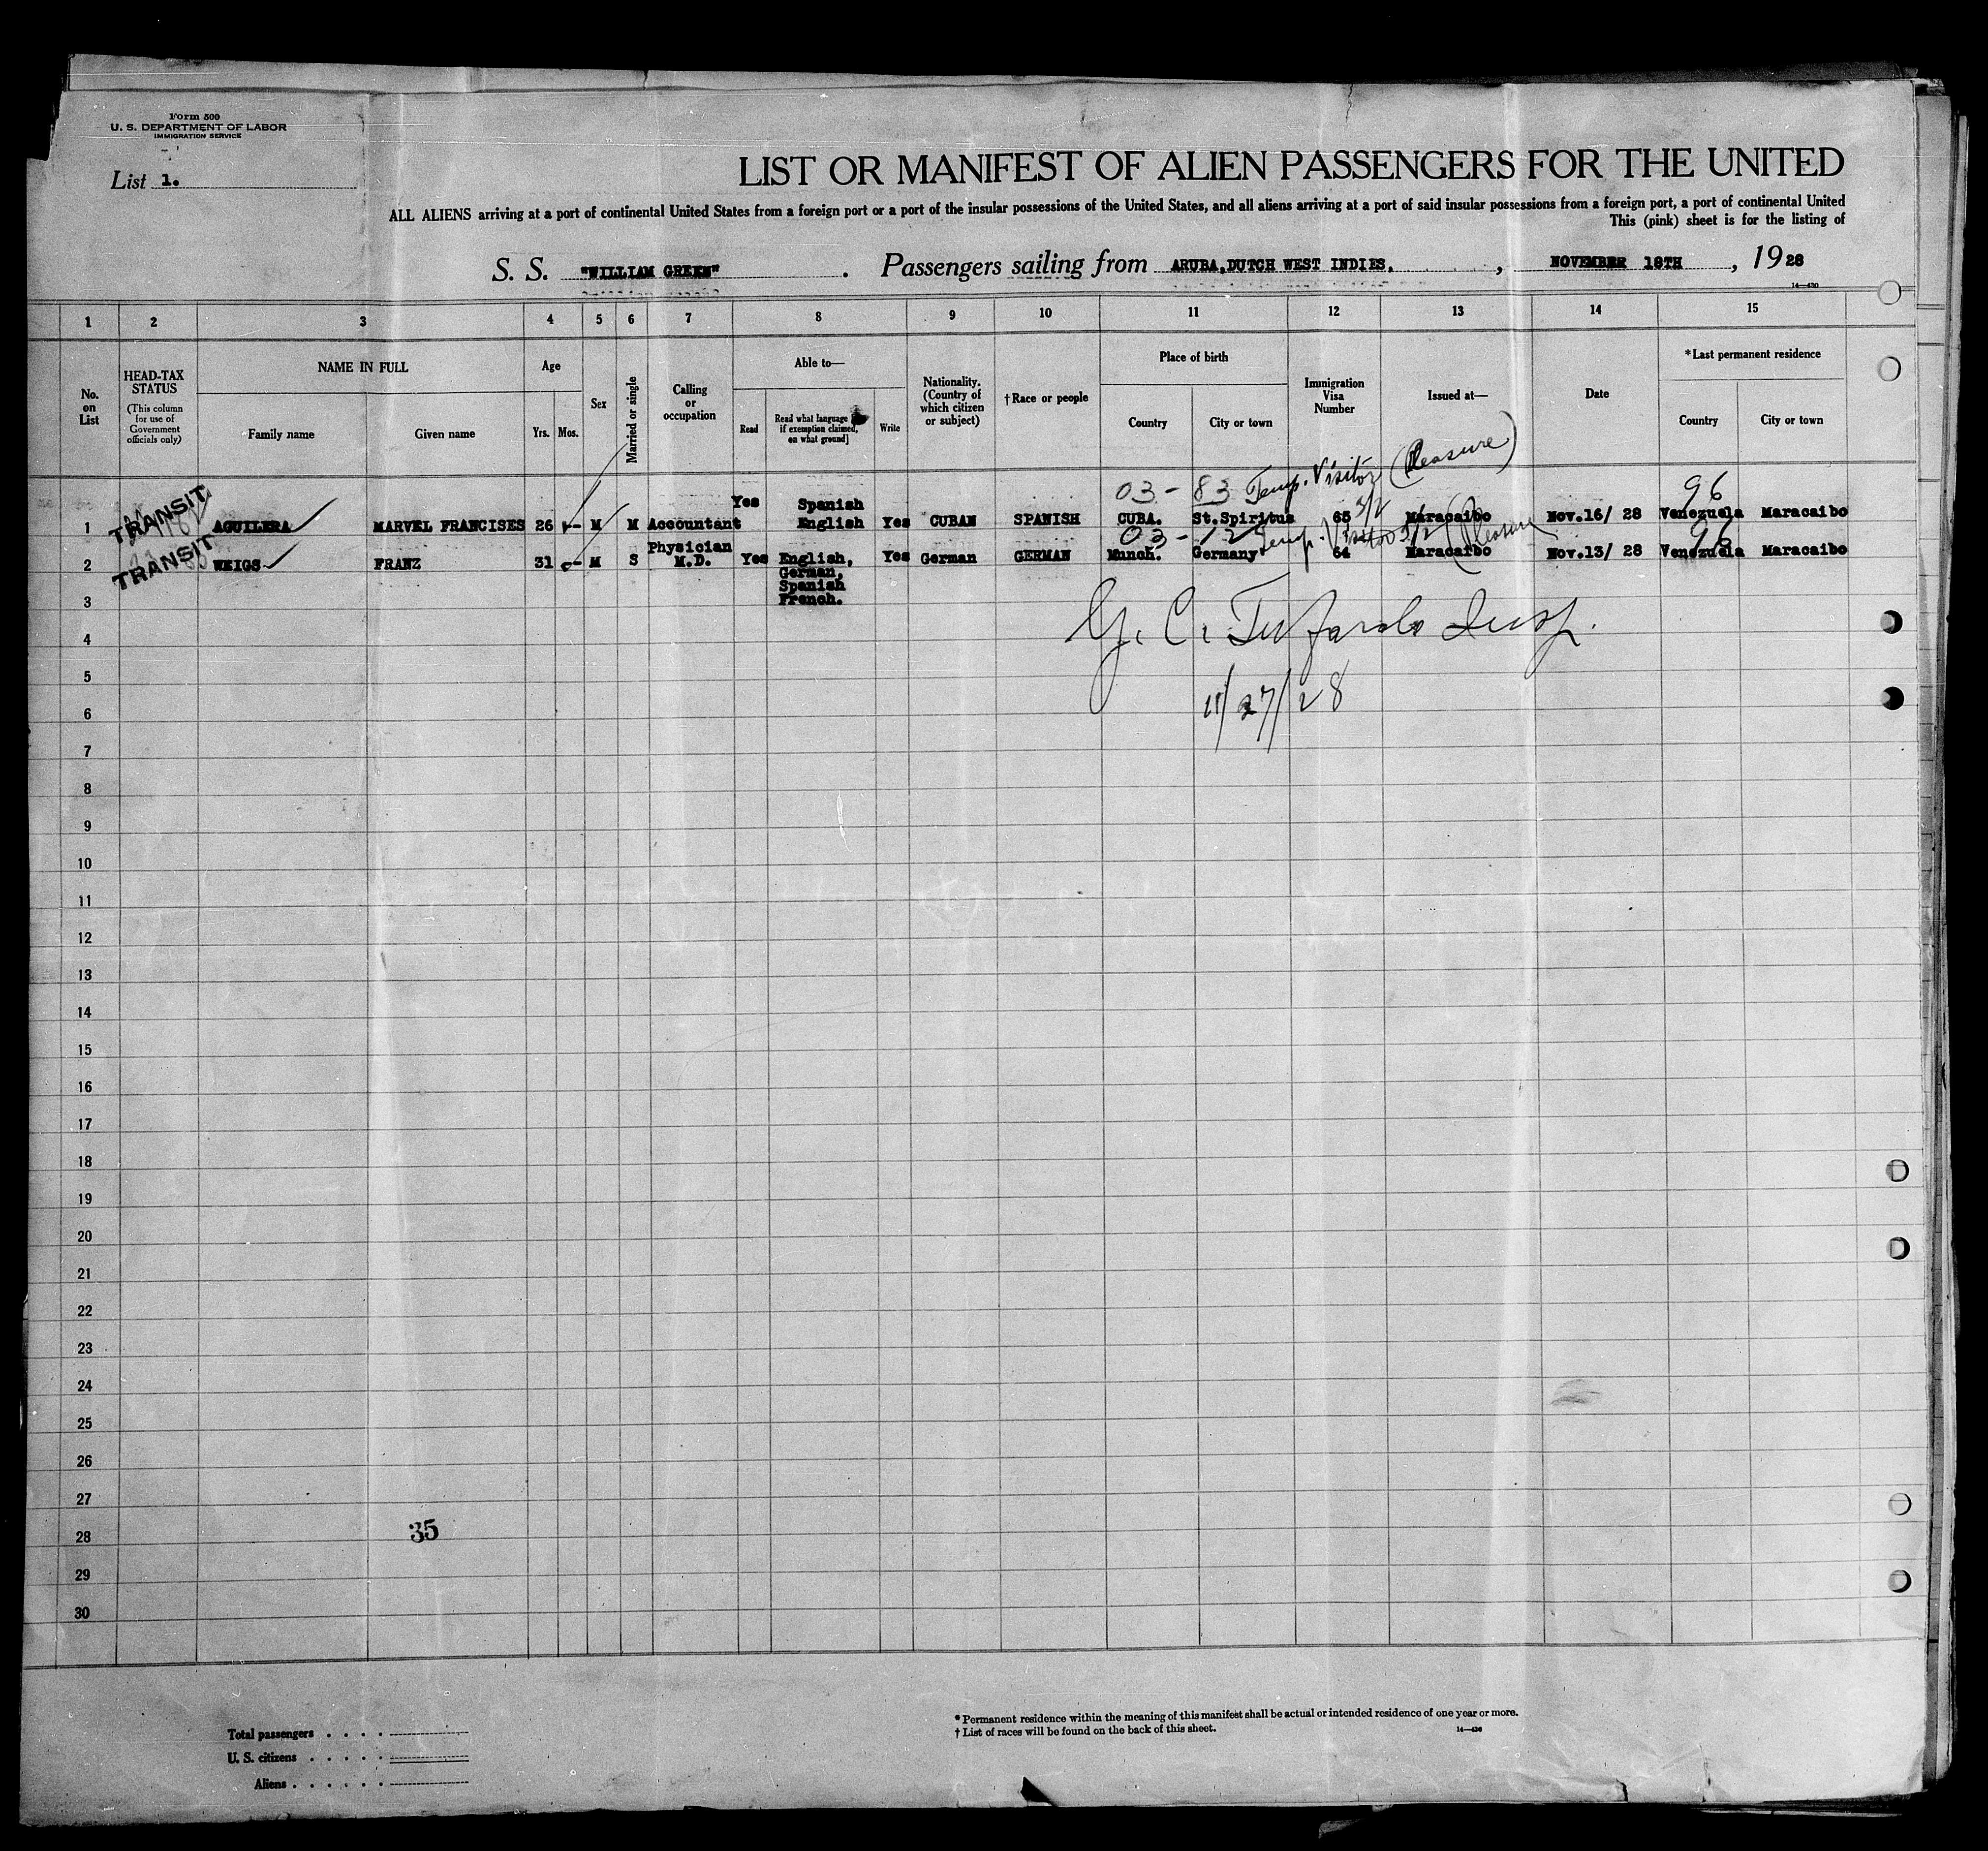 Form 500
U. S. DEPARTMENT OF LABOR
IMMIGRATION SERVICE
List 1.
LIST OR MANIFEST OF ALIEN PASSENGERS FOR THE UNITED
ALL ALIENS arriving at a port of continental United States from a foreign port or a port of the insular possessions of the United States, and all aliens arriving at a port of said insular possessions from a foreign port, a port of continental United
This (pink) sheet is for the listing of
S. S. "WILLIAM GREEN" . Passengers sailing from ARUBA,DUTCH WEST INDIES. , NOVEMBER 18TH , 1928
14—430
1 2 3 4 5 6 7 8 9 10 11 12 13 14 15
No. on List
HEAD-TAX STATUS
(This column for use of Government officials only)
NAME IN FULL
Family name
Given name
Age
Yrs. Mos.
Sex
Married or single
Calling or occupation
Able to—
Read
Read what language if exemption claimed, on what ground]
Write
Nationality. (Country of which citizen or subject)
†Race or people
Place of birth
Country
City or town
Immigration Visa Number
Issued at—
Date
*Last permanent residence
Country
City or town
03 - 83 Temp. Visitor (Pleasure) 96
TRANSIT
1 AGUILERA MARVEL FRANCISES 26 - M M Accountant Yes Spanish English Yes CUBAN SPANISH CUBA. St.Spiritus 65 3/2 Maracaibo Nov.16/ 28 Venezuela Maracaibo
03 - Temp. Visitor 3/2 (Pleasure 96
TRANSIT
2 WEIGS FRANZ 31 - M S Physician M.D. Yes English, German, Spanish French. Yes German GERMAN Munch. Germany 64 Maracaibo Nov.13/ 28 Venezuela Maracaibo
3
4
Insp.
5
11/27/28
6
7
8
9
10
11
12
13
14
15
16
17
18
19
20
21
22
23
24
25
26
27
35
28
29
30
Total passengers . . . .
U. S. citizens . . . . .
Aliens . . . . . .
* Permanent residence within the meaning of this manifest shall be actual or intended residence of one year or more.
† List of races will be found on the back of this sheet.
14—430